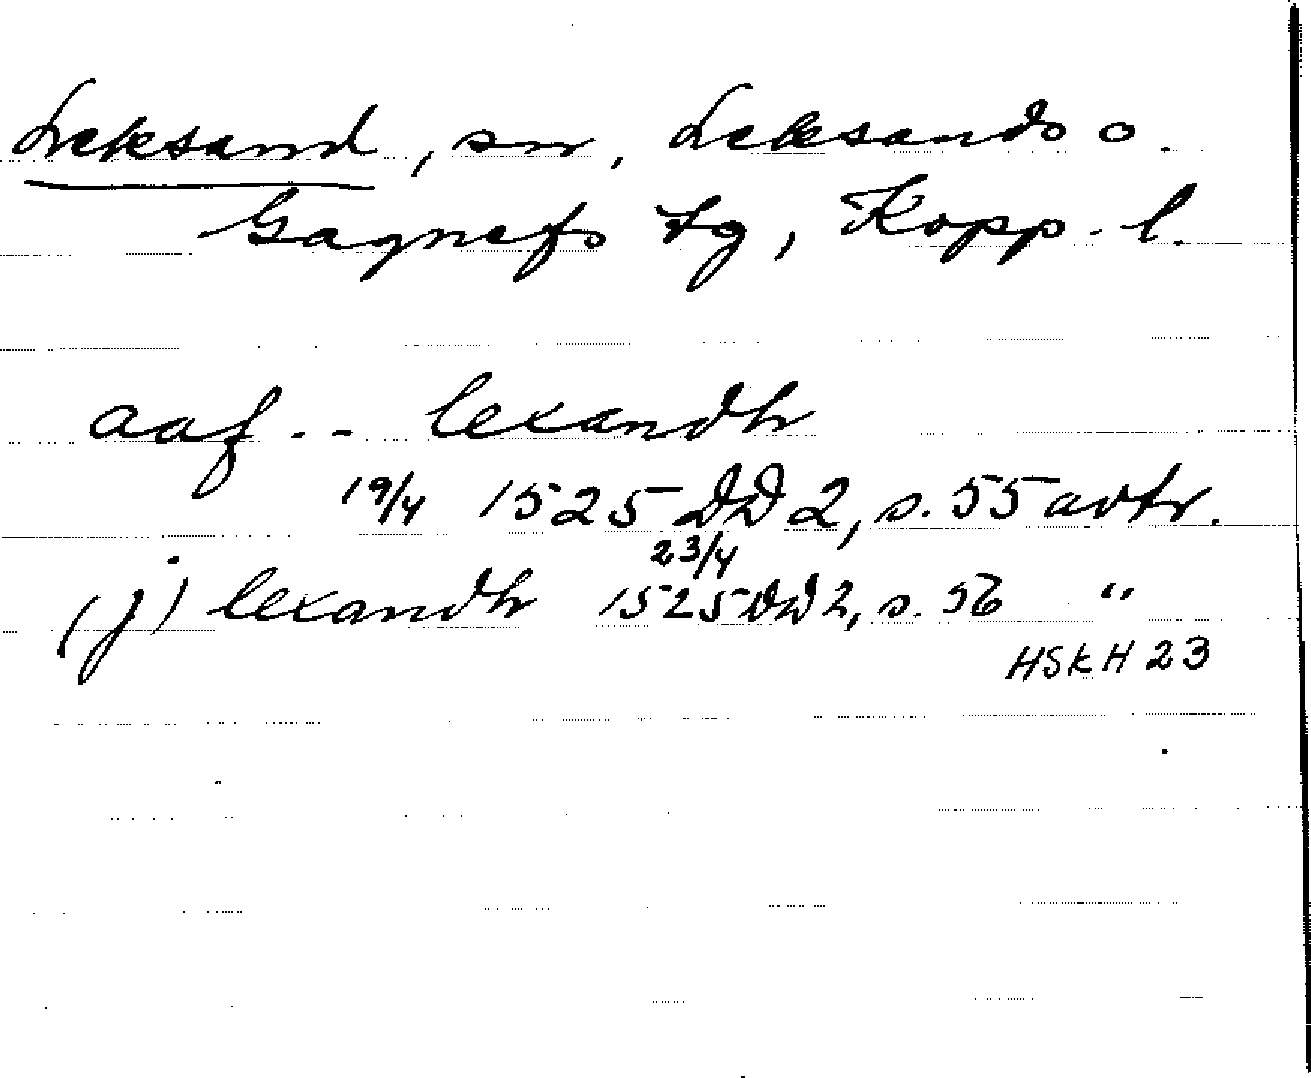 Leksand, sn, Leksands o.
Gagnefs tg, Kopp. l.
aaf -- lexandh
19/4 1525 DD 2, s. 55 avtr.
23/4
(j) lexandh 1525 DD 2, s. 56 "
HSkH 23